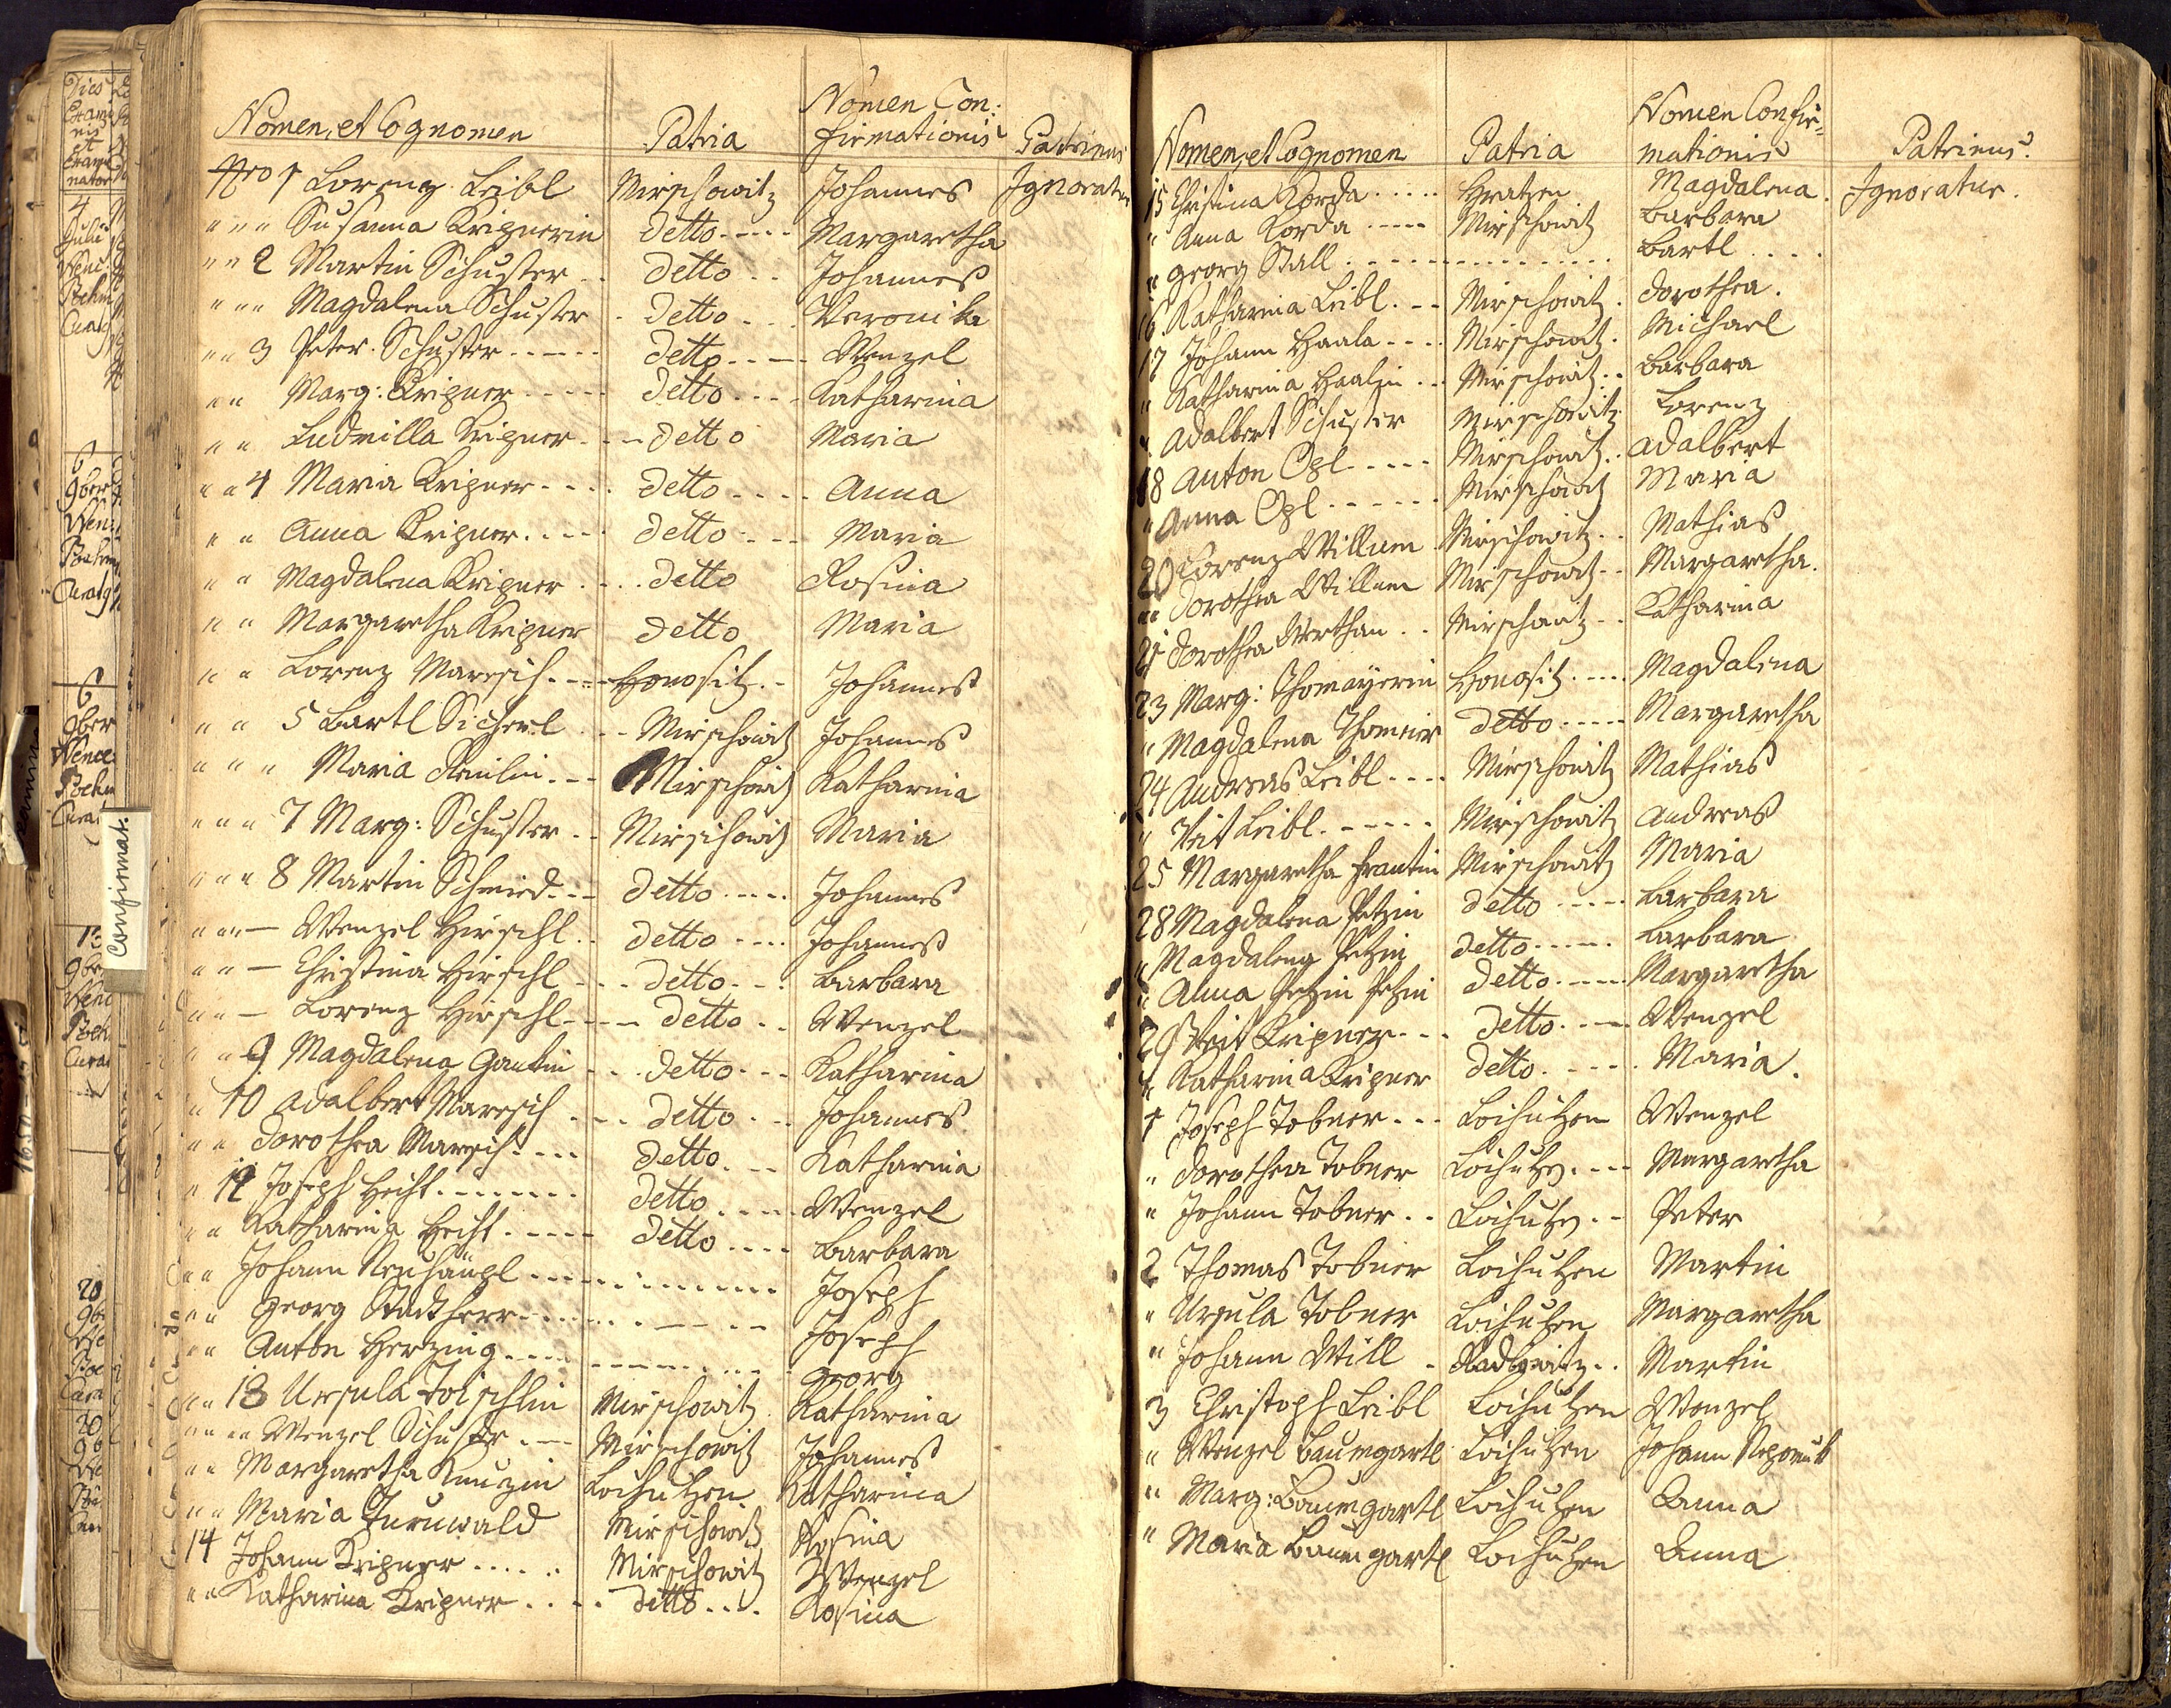 Nomen, et Cognomen Patria Nomen Con: firmationis Patrinus
Nro 1 Lorenz Leibl Mirschowitz Johannes Ignoratur
" " " Susanna Kripnerin detto Margaretha
" " 2 Martin Schuster detto Johannes
" " " Magdalena Schuster detto Veronika
" " 3 Peter Schuster detto Wenzel
" " Marg: Kripner detto Katharina
" " Ludmilla Kripner detto Maria
" " 4 Maria Kripner detto Anna
" " Anna Kripner detto Maria
" " Magdalena Kripner detto Rosina
" " Margaretha Kripner detto Maria
" " Lorenz Maresch Honositz Johannes
" " 5 Bartl Sicherl Mirschowitz Johannes
" " " Maria Mirschowitz Katharina
" " " 7 Marg: Schuster Mirschowitz Maria
" " " 8 Martin Schmied detto Johannes
" " " – Wenzel Hirschl detto Johannes
" " – Christina Hirschl detto Barbara
" " – Lorenz Hirschl detto Wenzel
" " 9 Magdalena Gantin detto Katharina
" 10 Adalbert Maresch detto Johannes
" " Dorothea Maresch detto Katharina
" 12 Joseph Hecht detto Wenzel
" " Katharina Hecht detto Barbara
" " Johann Neuhäupl Joseph
" " Georg Stadtherr Joseph
" " Anton Herzing Georg
" " 13 Ursula Toischlin Mirschowitz Katharina
" " " Wenzel Schuster Mirschowitz Johannes
" " Margaretha Lochutzen Katharina
" " Maria Turnwald Mirschowitz Rosina
14 Johann Kripner Mirschowitz Wenzel
" " Katharina Kripner detto Rosina
Confirmat.
Nomen, et Cognomen Patria Nomen Confir= mationis Patrinus.
15 Christina Korda Hratzen Magdalena Ignoratur.
" Anna Korda Mirschowitz Barbara
" Georg Stall Bartl
16 Katharina Leibl Mirschowitz Dorothea.
17 Johann Haala Mirschowitz Michael
" Katharina Haalin Mirschowitz Barbara
" Adalbert Schuster Mirschowitz Lorenz
18 Anton Opl Mirschowitz Adalbert
" Anna Opl Mirschowitz Maria
20 Lorenz Willum Mirschowitz Mathias
" " Dorothea Willum Mirschowitz Margaretha.
21 Dorothea Werthan Mirschowitz Katharina
23 Marg: Thomayerin Honositz Magdalena
" Magdalena Thomeier detto Margaretha
24 Andreas Leibl Mirschowitz Mathias
" Veit Leibl Mirschowitz Andreas
25 Margaretha Frantin Mirschowitz Maria
28 Magdalena Petzin detto Barbara
" Magdalena Petzin detto Barbara
" Anna Petzin Petzin detto Margaretha
29 Veit Kripner detto Wenzel
" Katharina Kripner detto Maria.
1 Joseph Tobner Lochutzen Wenzel
" Dorothea Tobner Lochutzen Margaretha
" Johann Tobner Lochutzen Peter
2 Thomas Tobner Lochutzen Martin
" Ursula Tobner Lochutzen Margaretha
" Johann Will Radlowitz Martin
3 Christoph Leibl Lochutzen Wenzel
" Wenzel Baumgartl Lochutzen Johann Nepomuk
" Marg: Baumgartl Lochutzen Anna
" Maria Baumgartl Lochutzen Anna